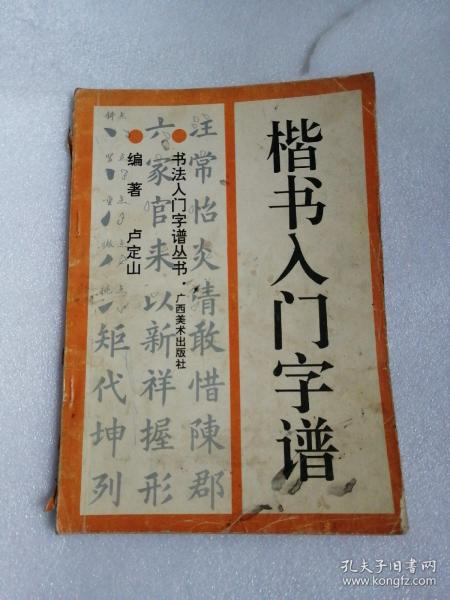 楷书入门字谱
书法入门字谱丛书·广西美术出版社
编著 卢定山
注常怡炎清敢惜陳郡
六家官来以新祥握形
矩代坤列
孔夫子旧书网
www.kongfz.com